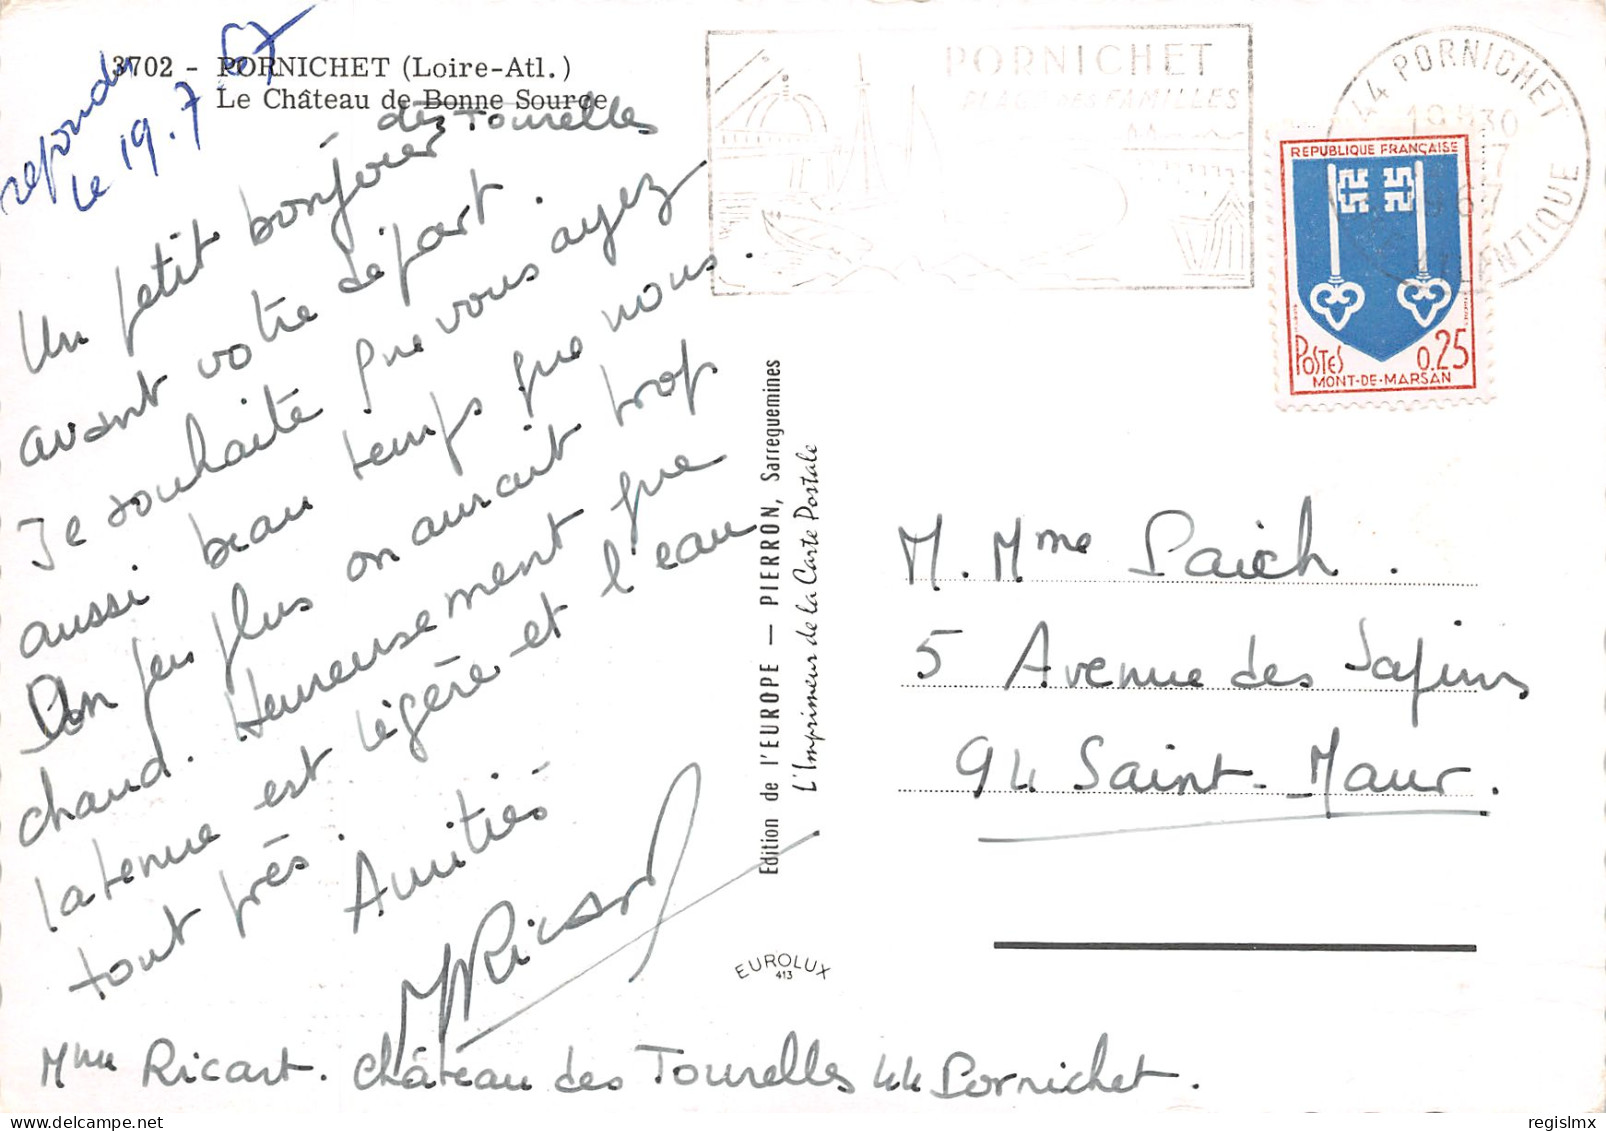 répondu
le 19.7.67
3702 - PORNICHET (Loire-Atl.)
Le Château de Bonne Source
des Tourelles
Un petit bonjour
avant votre départ.
Je souhaite que vous ayez
aussi beau temps que nous.
Un peu plus on aurait trop
chaud. Heureusement que
la tenue est légère et l'eau
tout près.
Amitiés
Ricard
Mme Ricart. Château des Tourelles 44 Pornichet.
Edition de l'EUROPE — PIERRON, Sarreguemines
L'Imprimeur de la Carte Postale
EUROLUX
413
PORNICHET
PLAGE DES FAMILLES
44 PORNICHET
19H30
REPUBLIQUE FRANÇAISE
POSTES 0.25
MONT-DE-MARSAN
M. Mme Paich.
5 Avenue des Sapins
94 Saint-Maur.
delcampe.net
regislmx